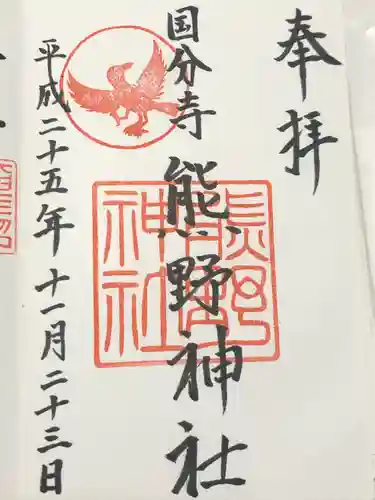 奉拝
国分寺 熊野神社
平成二十五年十一月二十三日
熊野神社